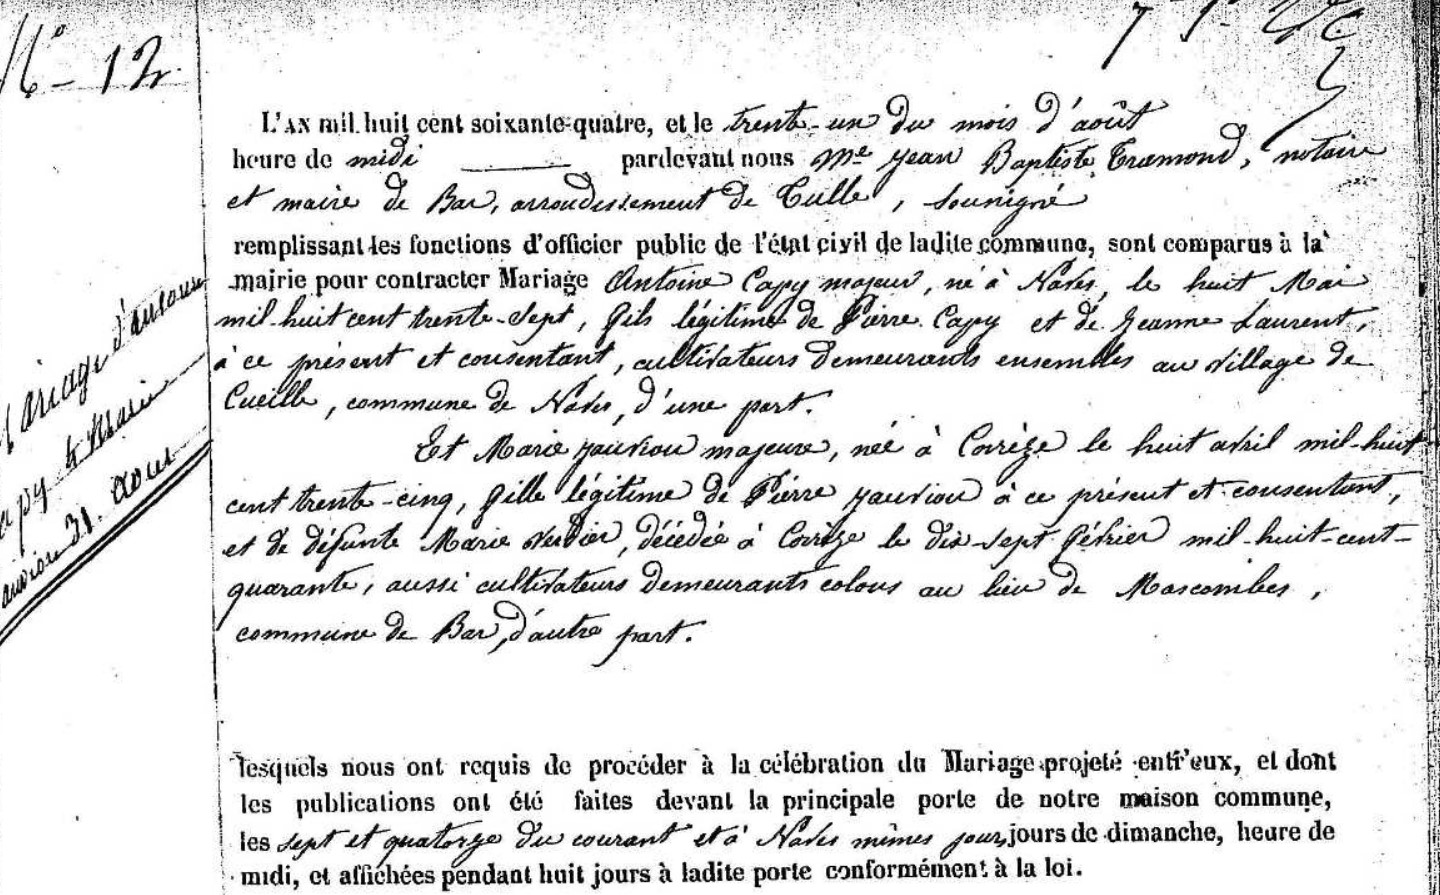 N° 12
L'AN mil huit cent soixante-quatre, et le trente-un du mois d'août
heure de midi pardevant nous Me Jean Baptiste Tramond, notaire
et maire de Bar, arrondissement de Tulle, soussigné
remplissant les fonctions d'officier public de l'état civil de ladite commune, sont comparus à la
mairie pour contracter Mariage Antoine Capy majeur, né à Naves, le huit Mai
mil-huit cent trente-sept, fils légitime de Pierre Capy et de Jeanne Laurent,
à ce présent et consentant, cultivateurs demeurants ensembles au village de
Cueille, commune de Naves, d'une part.
Et Marie Jauviou majeure, née à Corrèze le huit avril mil-huit
cent trente-cinq, fille légitime de Pierre Jauviou à ce présent et consentant,
et de défunte Marie Verdier, décédée à Corrèze le dix-sept février mil-huit-cent-
quarante, aussi cultivateurs demeurants colons au lieu de Mascombes,
commune de Bar, d'autre part.
Mariage d'antoine
Capy & Marie
Jauviou 31. Aout
lesquels nous ont requis de procéder à la célébration du Mariage projeté entr'eux, et dont
les publications ont été faites devant la principale porte de notre maison commune,
les sept et quatorze du courant et à Naves mêmes jours, jours de dimanche, heure de
midi, et affichées pendant huit jours à ladite porte conformément à la loi.